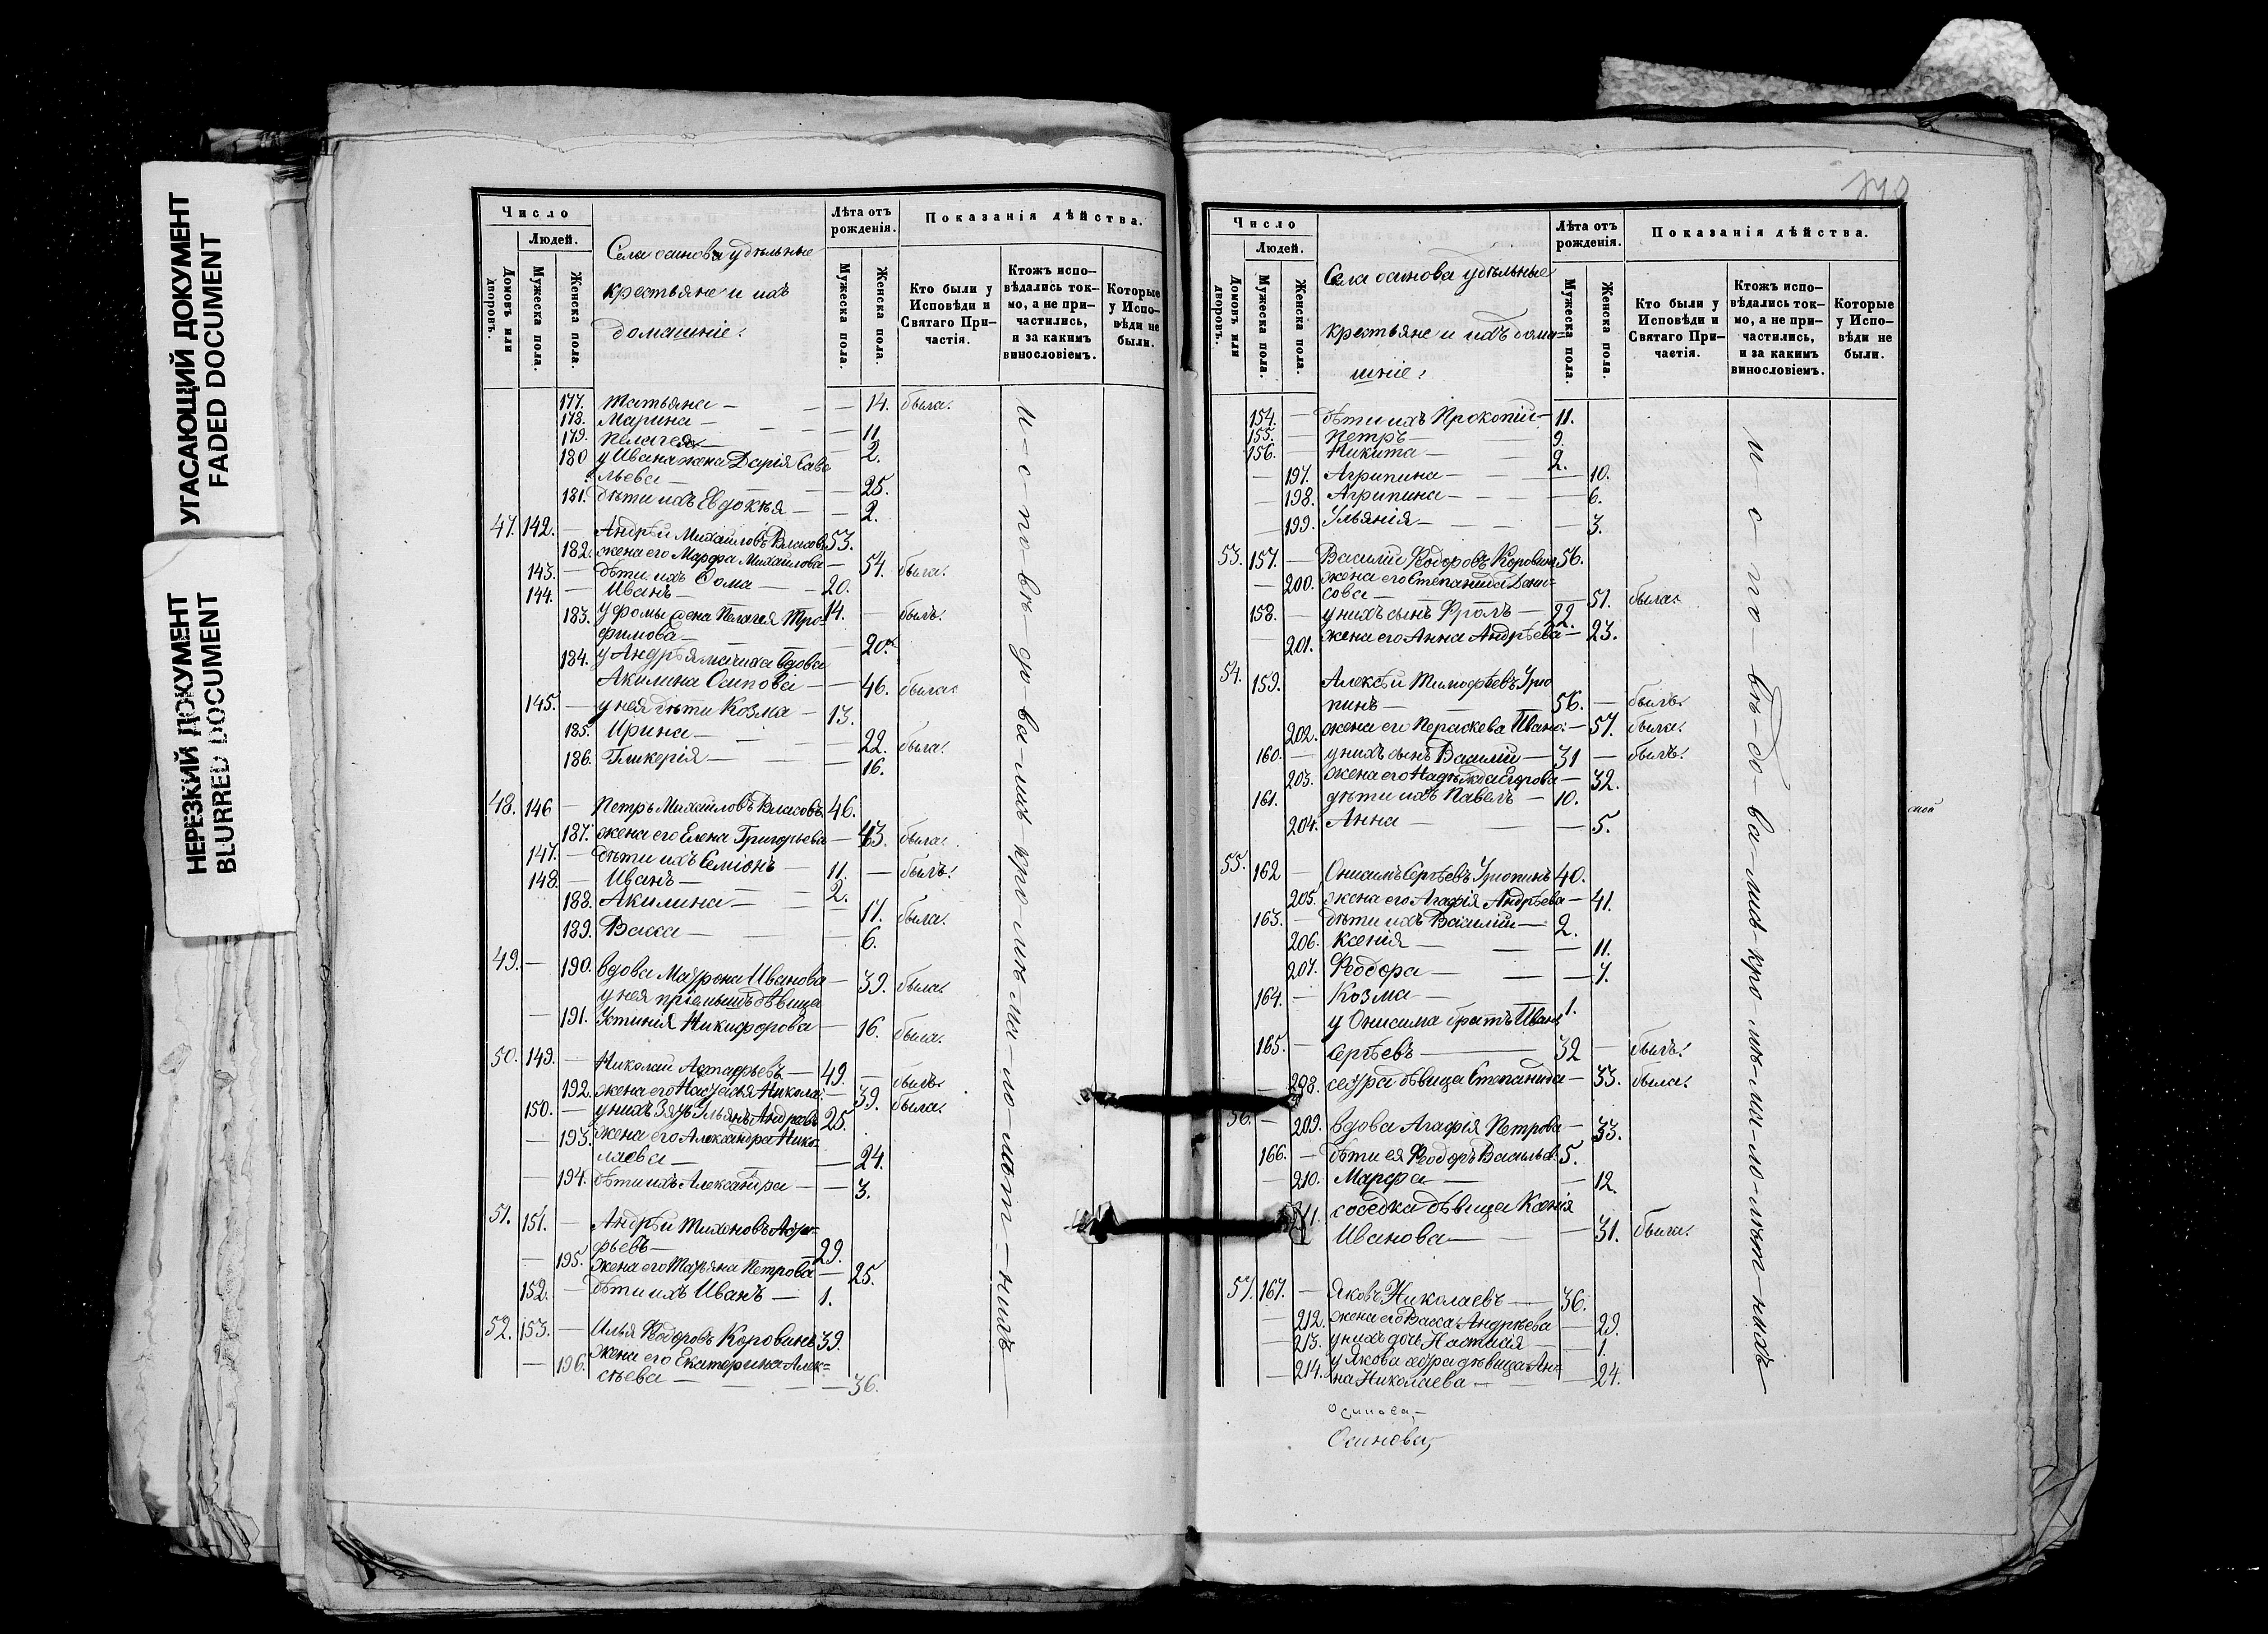 УГАСАЮЩИЙ ДОКУМЕНТ
FADED DOCUMENT
НЕРЕЗКИЙ ДОКУМЕНТ
BLURRED DOCUMENT
Число
Людей.
Домовъ или дворовъ.
Мужеска пола.
Женска пола.
Села осинова удѣльные
крестьяне и ихъ
домашніе:
Лѣта отъ рожденія.
Мужеска пола.
Женска пола.
Показанія дѣйства.
Кто были у Исповѣди и Святаго При-частія.
Ктожъ испо-вѣдались ток-мо, а не при-частились, и за какимъ винословіемъ.
Которые у Испо-вѣди не были.
177. Татьяна — 14. была.
178. Марина — 11
179. Пелагея — 2.
180 у Ивана жена Дарія Саве
льева — 25.
181. дѣти ихъ Евдокѣя — 2.
47. 142. — Андрѣй Михайловъ Власовъ 53.
182. жена его Марфа Михайлова — 54. была.
143. — дѣти ихъ Фома — 20.
144. — Иванъ — 14. — былъ.
183. у Фомы жена Пелагея Тро-
фимова — 20.
184. у Андрѣя мачиха вдова
Акилина Осипова — 46. была.
145. — у нея дѣти Козма — 13.
185. Ирина — 22. была.
186. Гликерія — 16.
48. 146 — Петръ Михайловъ Власовъ 46.
187. жена его Елена Григорьева — 43. была.
147. — дѣти ихъ Семіонъ — 11. — былъ.
148. — Иванъ — 2.
188. Акилина — 17. была.
189. Васса — 6.
49. — 190. вдова Матрона Иванова — 39. была.
у нея пріемышъ дѣвица
— 191. Устинія Никифорова — 16. была.
50. 149. — Николай Астафьевъ — 49. — былъ.
192. жена его Наталья Никола: — 39. была.
150. — у нихъ зять Ульянъ Андреевъ 25.
— 193. жена его Александра Нико-
лаева — 24.
— 194. дѣти ихъ Александра — 3.
51. 151. — Андрѣй Тихоновъ Аста-
фьевъ — 29.
— 195. жена его Татьяна Петрова — 25.
152. — дѣти ихъ Иванъ — 1.
52. 153. — Илья Ѳедоровъ Коровинъ 39.
— 196. жена его Екатерина Алек-
сѣева — 36.
И-с-по-вѣ-до-ва-лись-кро-мѣ-ма-ло-лѣт-нихъ
Число
Людей.
Домовъ или дворовъ.
Мужеска пола.
Женска пола.
Села осинова удѣльные
крестьяне и ихъ дома-
шніе:
Лѣта отъ рожденія.
Мужеска пола.
Женска пола.
Показанія дѣйства.
Кто были у Исповѣди и Святаго При-частія.
Ктожъ испо-вѣдались ток-мо, а не при-частились, и за какимъ винословіемъ.
Которые у Испо-вѣди не были.
154. — дѣти ихъ Прокопій — 11.
155. — Петръ — 9.
156. — Никита — 2.
— 197. Агрипина — 10.
— 198. Агрипина — 6.
— 199. Ульянія — 3.
53. 157. — Василій Ѳедоровъ Коровинъ 56.
— 200. жена его Степанида Дани-
сова — 51. была.
158. — у нихъ сынъ Фролъ — 22.
— 201. жена его Анна Андрѣева — 23.
54. 159. Алексѣй Тимофѣевъ Урю
пинъ — 56. — былъ.
202. жена его Пераскева Ивано: — 57. была.
160. — у нихъ сынъ Василій — 31 — былъ.
203. жена его Надѣжда Егорова — 32.
161. дѣти ихъ Павелъ — 10.
204. Анна — 5.
55. 162 — Онисимъ Сергѣевъ Урюпинъ 40.
205. жена его Агафія Андрѣева — 41.
163. — дѣти ихъ Василій — 2.
206. Ксенія — 11.
207. Ѳеодора — 7.
164. — Козма — 1.
у Онисима братъ Иванъ
165. — Сергѣевъ — 32 — былъ.
— 208. сестра дѣвица Степанида — 33. была.
56. — 209. вдова Агафія Петрова — 33.
166. — дѣти ея Ѳеодоръ Васильев: 5.
— 210. Марфа — 12.
211. соседка дѣвица Ксенія
Иванова — 31. была.
57. 167. — Яковъ Николаевъ — 36.
— 212. жена его Васса Андрѣева — 29.
— 213. у нихъ дочь Настасія — 1.
— 214. у Якова сестра дѣвица Ан-
на Николаева — 24.
И-с-по-вѣ-до-ва-лись-кро-мѣ-ма-ло-лѣт-нихъ
Осинова,—
Осинова,